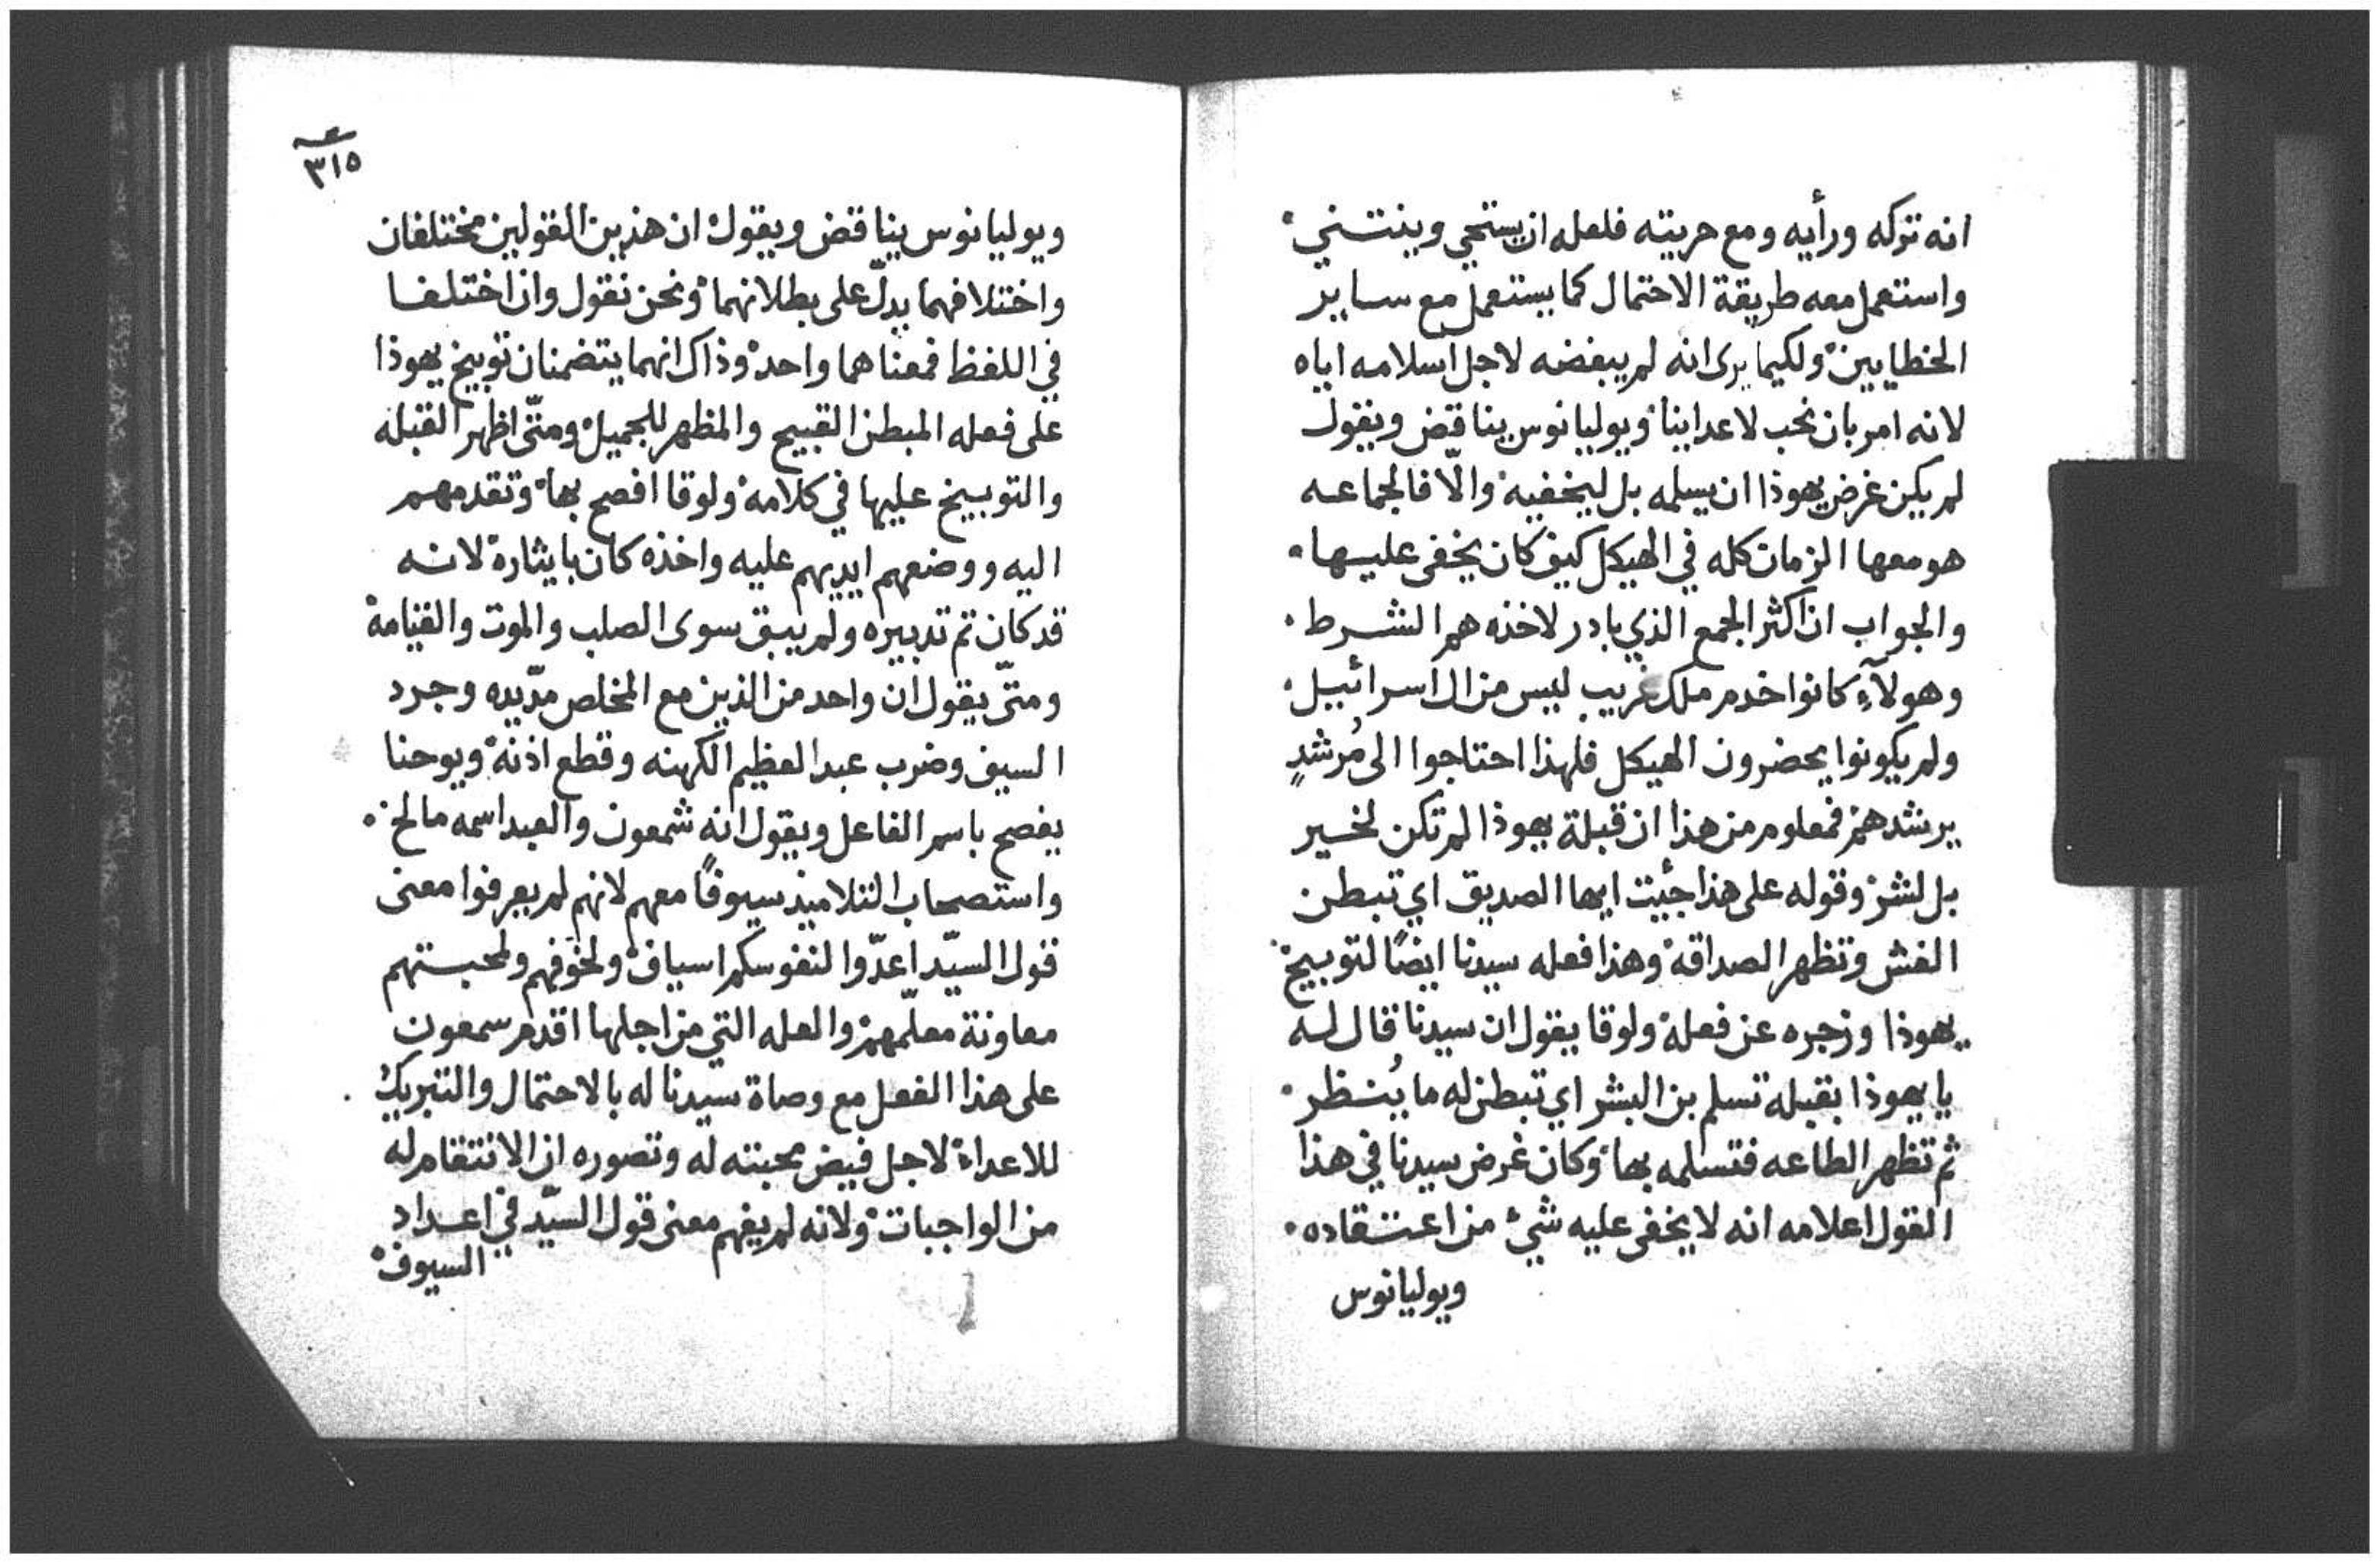 انه تركه ورأيه ومع حريته فلعله ان يستحي وينثني
واستعمل معه طريقة الاحتمال كما يستعمل مع ساير
الخطايين ولكيما يرى انه لم يبغضه لاجل اسلامه اياه
لانه امر بان نحب لاعداينا ويوليانوس يناقض ويقول
لم يكن غرض يهوذا ان يسلمه بل ليخفيه والّا فالجماعه
هو معها الزمان كله في الهيكل كيف كان يخفى عليها
والجواب ان اكثر الجمع الذي بادر لاخذه هم الشرط
وهولآءِ كانوا خدم ملك غريب ليس من ال اسرائيل
ولم يكونوا يحضرون الهيكل فلهذا احتاجوا الى مُرشدٍ
يرشدهم فمعلوم من هذا ان قبلة يهوذا لم تكن لخير
بل لشر وقوله على هذا جئيت ايها الصديق اي تبطن
الغش وتظهر الصداقة وهذا فعله سيدنا ايضًا لتوبيخ
يهوذا وزجره عن فعله ولوقا يقول ان سيدنا قال له
يا يهوذا بقبله تسلم بن البشر اي تبطن له ما يُنظر
ثم تظهر الطاعه فتسلمه بها وكان غرض سيدنا في هذا
القول اعلامه انه لا يخفى عليه شيء من اعتقاده
ويوليانوس
٣١٥
ويوليانوس يناقض ويقول ان هذين القولين مختلفان
واختلافهما يدلّ على بطلانهما ونحن نقول وان اختلفا
في اللفظ فمعناهما واحد وذاك انهما يتضمنان توبيخ يهوذا
على فعله المبطن القبيح والمظهر للجميل ومتّى اظهر القبله
والتوبيخ عليها في كلامه ولوقا افصح بها وتقدمهم
اليه ووضعهم ايديهم عليه واخذه كان بايثاره لانه
قد كان تم تدبيره ولم يبق سوى الصلب والموت والقيامة
ومتّى يقول ان واحد من الذين مع المخلص مدّ يده وجرد
السيف وضرب عبد العظيم الكهنه وقطع اذنه ويوحنا
يفصح باسم الفاعل ويقول انه شمعون والعبد اسمه مالخ
واستصحاب التلاميذ سيوفًا معهم لانهم لم يعرفوا معنى
قول السيّد اعدّوا لنفوسكم اسياف ولخوفهم ولمحبتهم
معاونة معلّمهم والعله التي من اجلها اقدم سمعون
على هذا الفعل مع وصاة سيدنا له بالاحتمال والتبريك
للاعداء لاجل فيض محبته له وتصوره ان الانتقام له
من الواجبات ولانه لم يفهم معنى قول السيّد في اعداد
السيوف